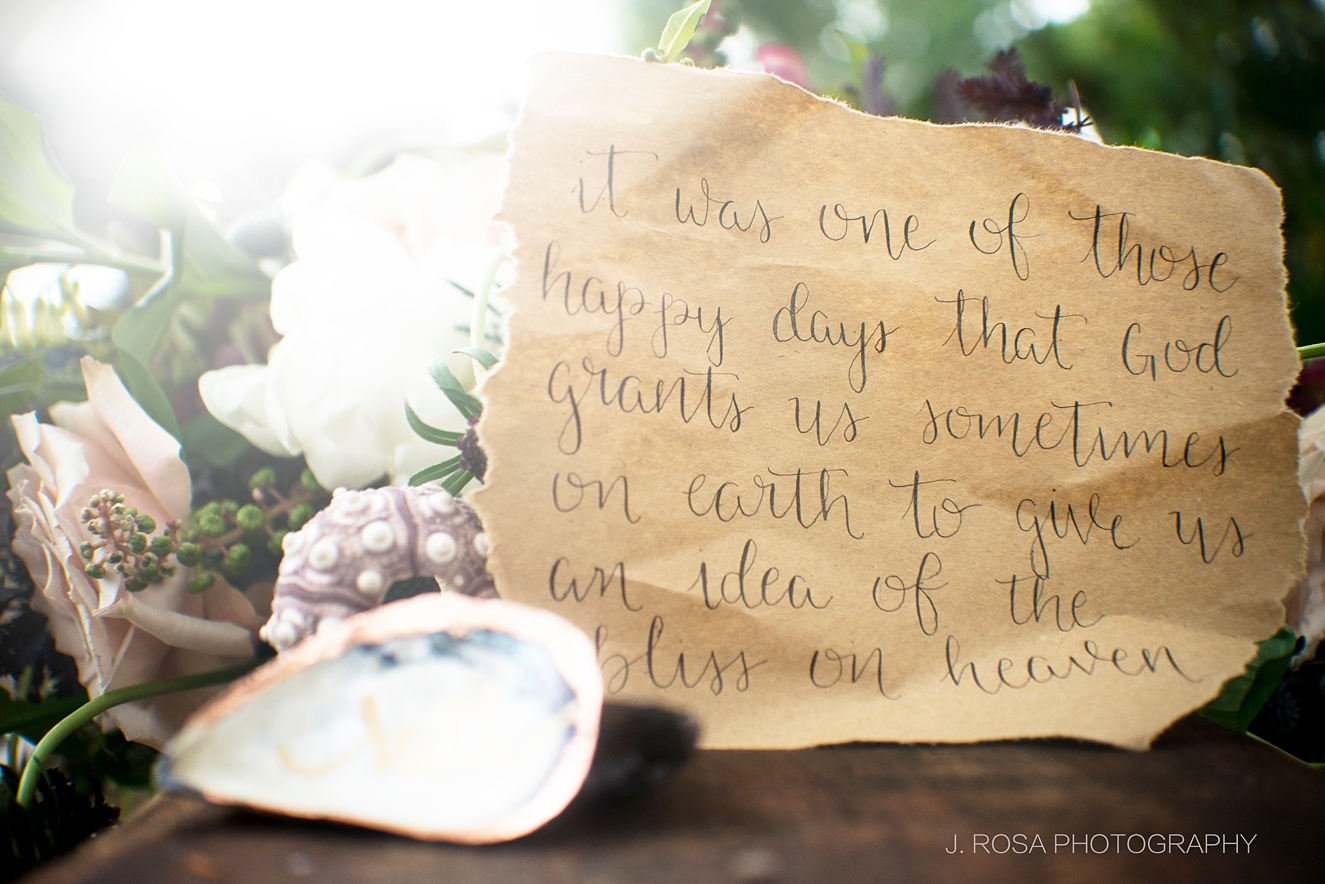 it was one of those
happy days that God
grants us sometimes
on earth to give us
an idea of the
bliss on heaven
J. ROSA PHOTOGRAPHY